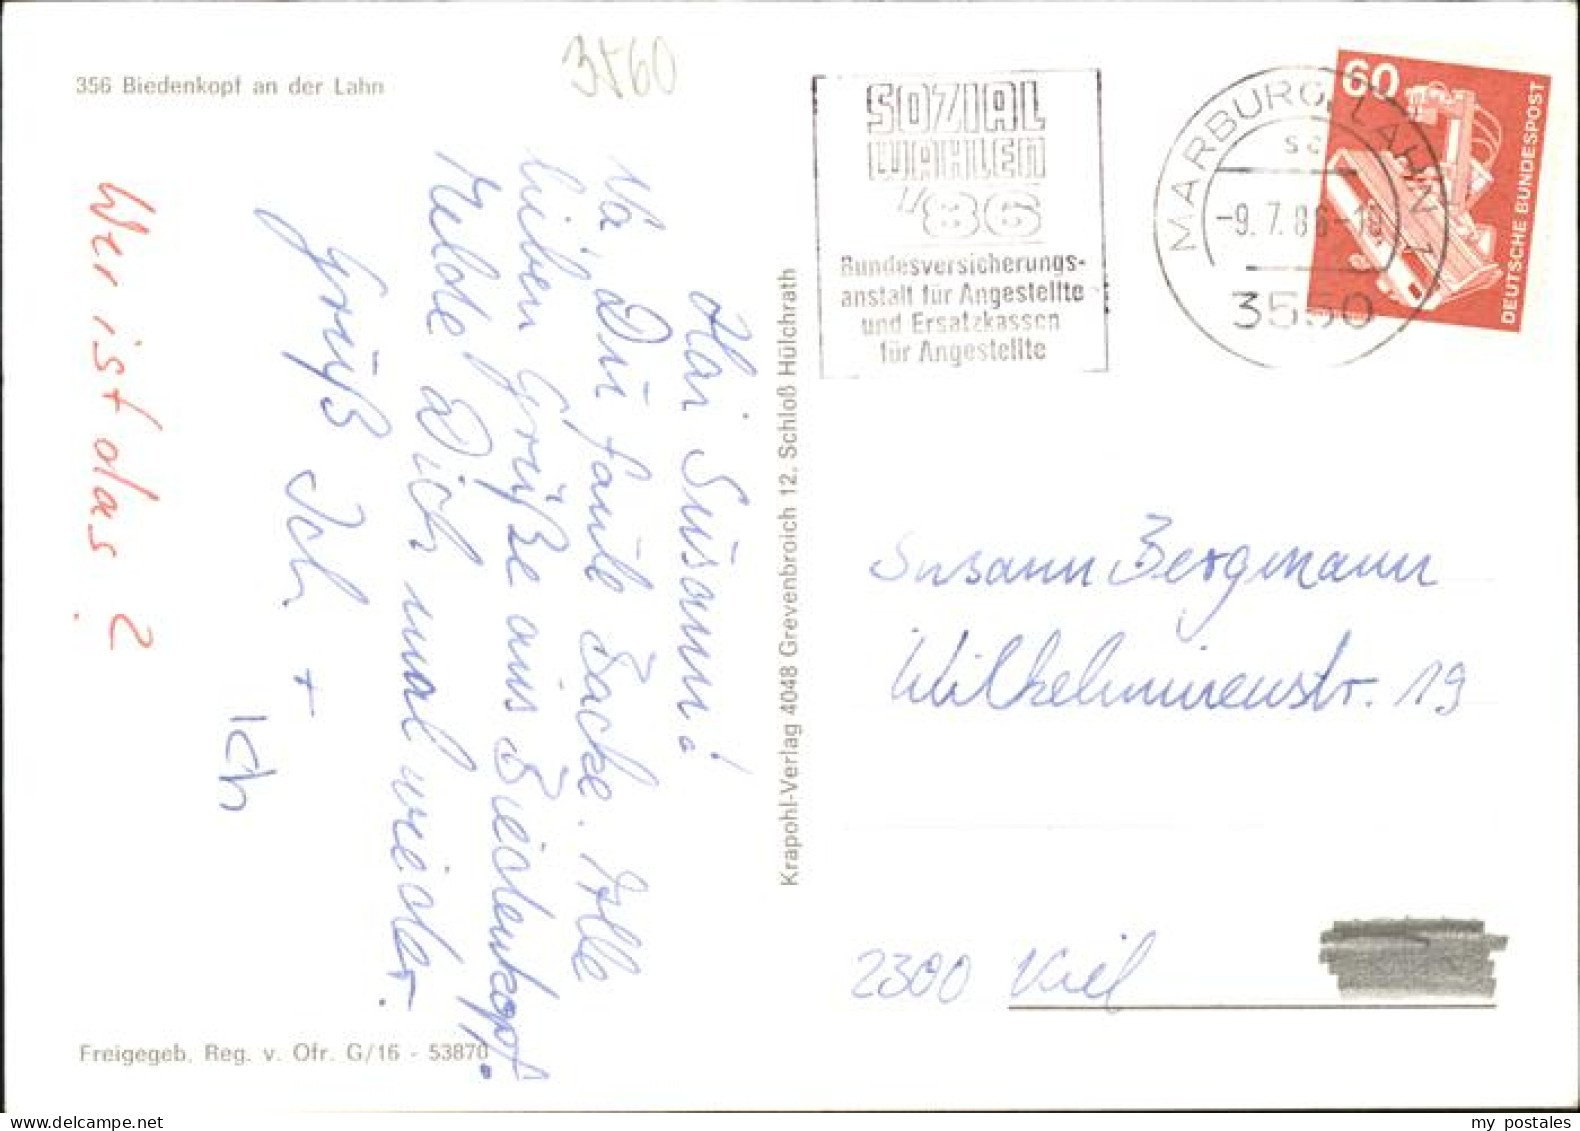 356 Biedenkopf an der Lahn
3560
SOZIAL
WAHLEN
'86
Bundesversicherungs-
anstalt für Angestellte
und Ersatzkassen
für Angestellte
MARBURG, LAHN 1
sc
-9.7.86-18
3550
60
DEUTSCHE BUNDESPOST
Hai Susann!
Na, Du faule Backe. Alle
lieben Grüße aus Biedenkopf.
Melde Dich mal wieder.
Gruß Ich +
Ich
Wer ist das?
Krapohl-Verlag 4048 Grevenbroich 12, Schloß Hülchrath
Susann Bergmann
Wilhelminenstr. 19
2300 Kiel
Freigegeb. Reg. v. Ofr. G/16 - 53870
my postales